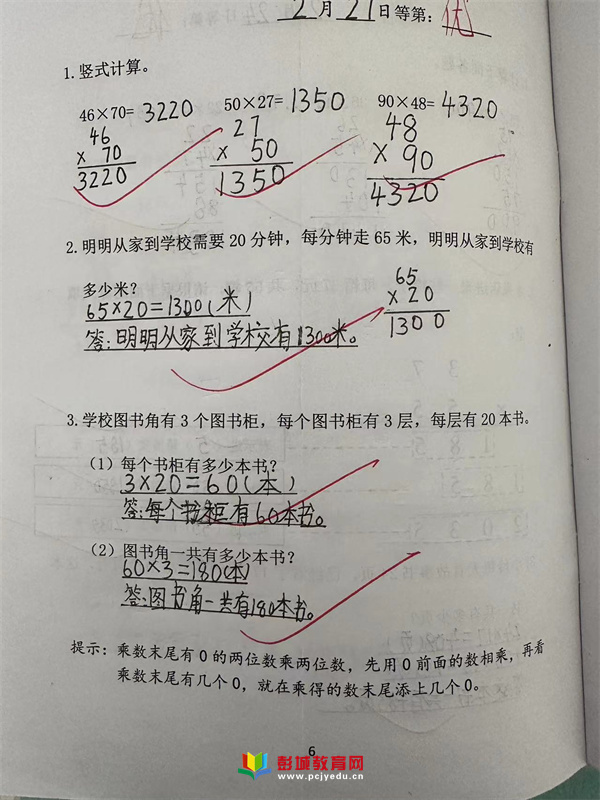 2月21日等第：优
1.竖式计算。
46×70=3220 50×27=1350 90×48=4320
46 27 48
×70 ×50 ×90
3220 1350 4320
2.明明从家到学校需要20分钟，每分钟走65米，明明从家到学校有
多少米？
65×20=1300(米)
答：明明从家到学校有1300米。
65
×20
1300
3.学校图书角有3个图书柜，每个图书柜有3层，每层有20本书。
（1）每个书柜有多少本书？
3×20=60(本)
答：每个书柜有60本书。
（2）图书角一共有多少本书？
60×3=180(本)
答：图书角一共有180本书。
提示：乘数末尾有0的两位数乘两位数，先用0前面的数相乘，再看
乘数末尾有几个0，就在乘得的数末尾添上几个0。
6
彭城教育网
www.pcjyedu.cn